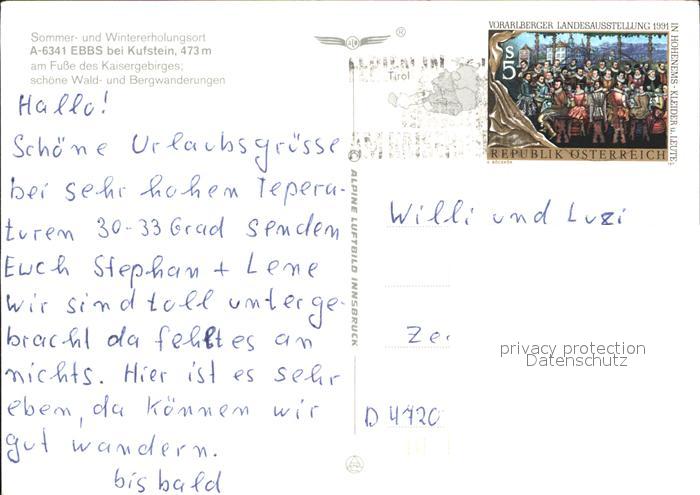 Sommer- und Wintererholungsort
A-6341 EBBS bei Kufstein, 473 m
am Fuße des Kaisergebirges;
schöne Wald- und Bergwanderungen
Hallo!
Schöne Urlaubsgrüsse
bei sehr hohen Tepera-
turen 30-33 Grad senden
Euch Stephan + Lene
wir sind toll unterge-
bracht da fehlt es an
nichts. Hier ist es sehr
eben, da können wir
gut wandern.
bis bald
®
© ALPINE LUFTBILD INNSBRUCK
Tirol
VORARLBERGER LANDESAUSSTELLUNG 1991
IN HOHENEMS - KLEIDER u. LEUTE
S
5
REPUBLIK ÖSTERREICH
Willi und Luzi
Ze
D 4720
privacy protection
Datenschutz